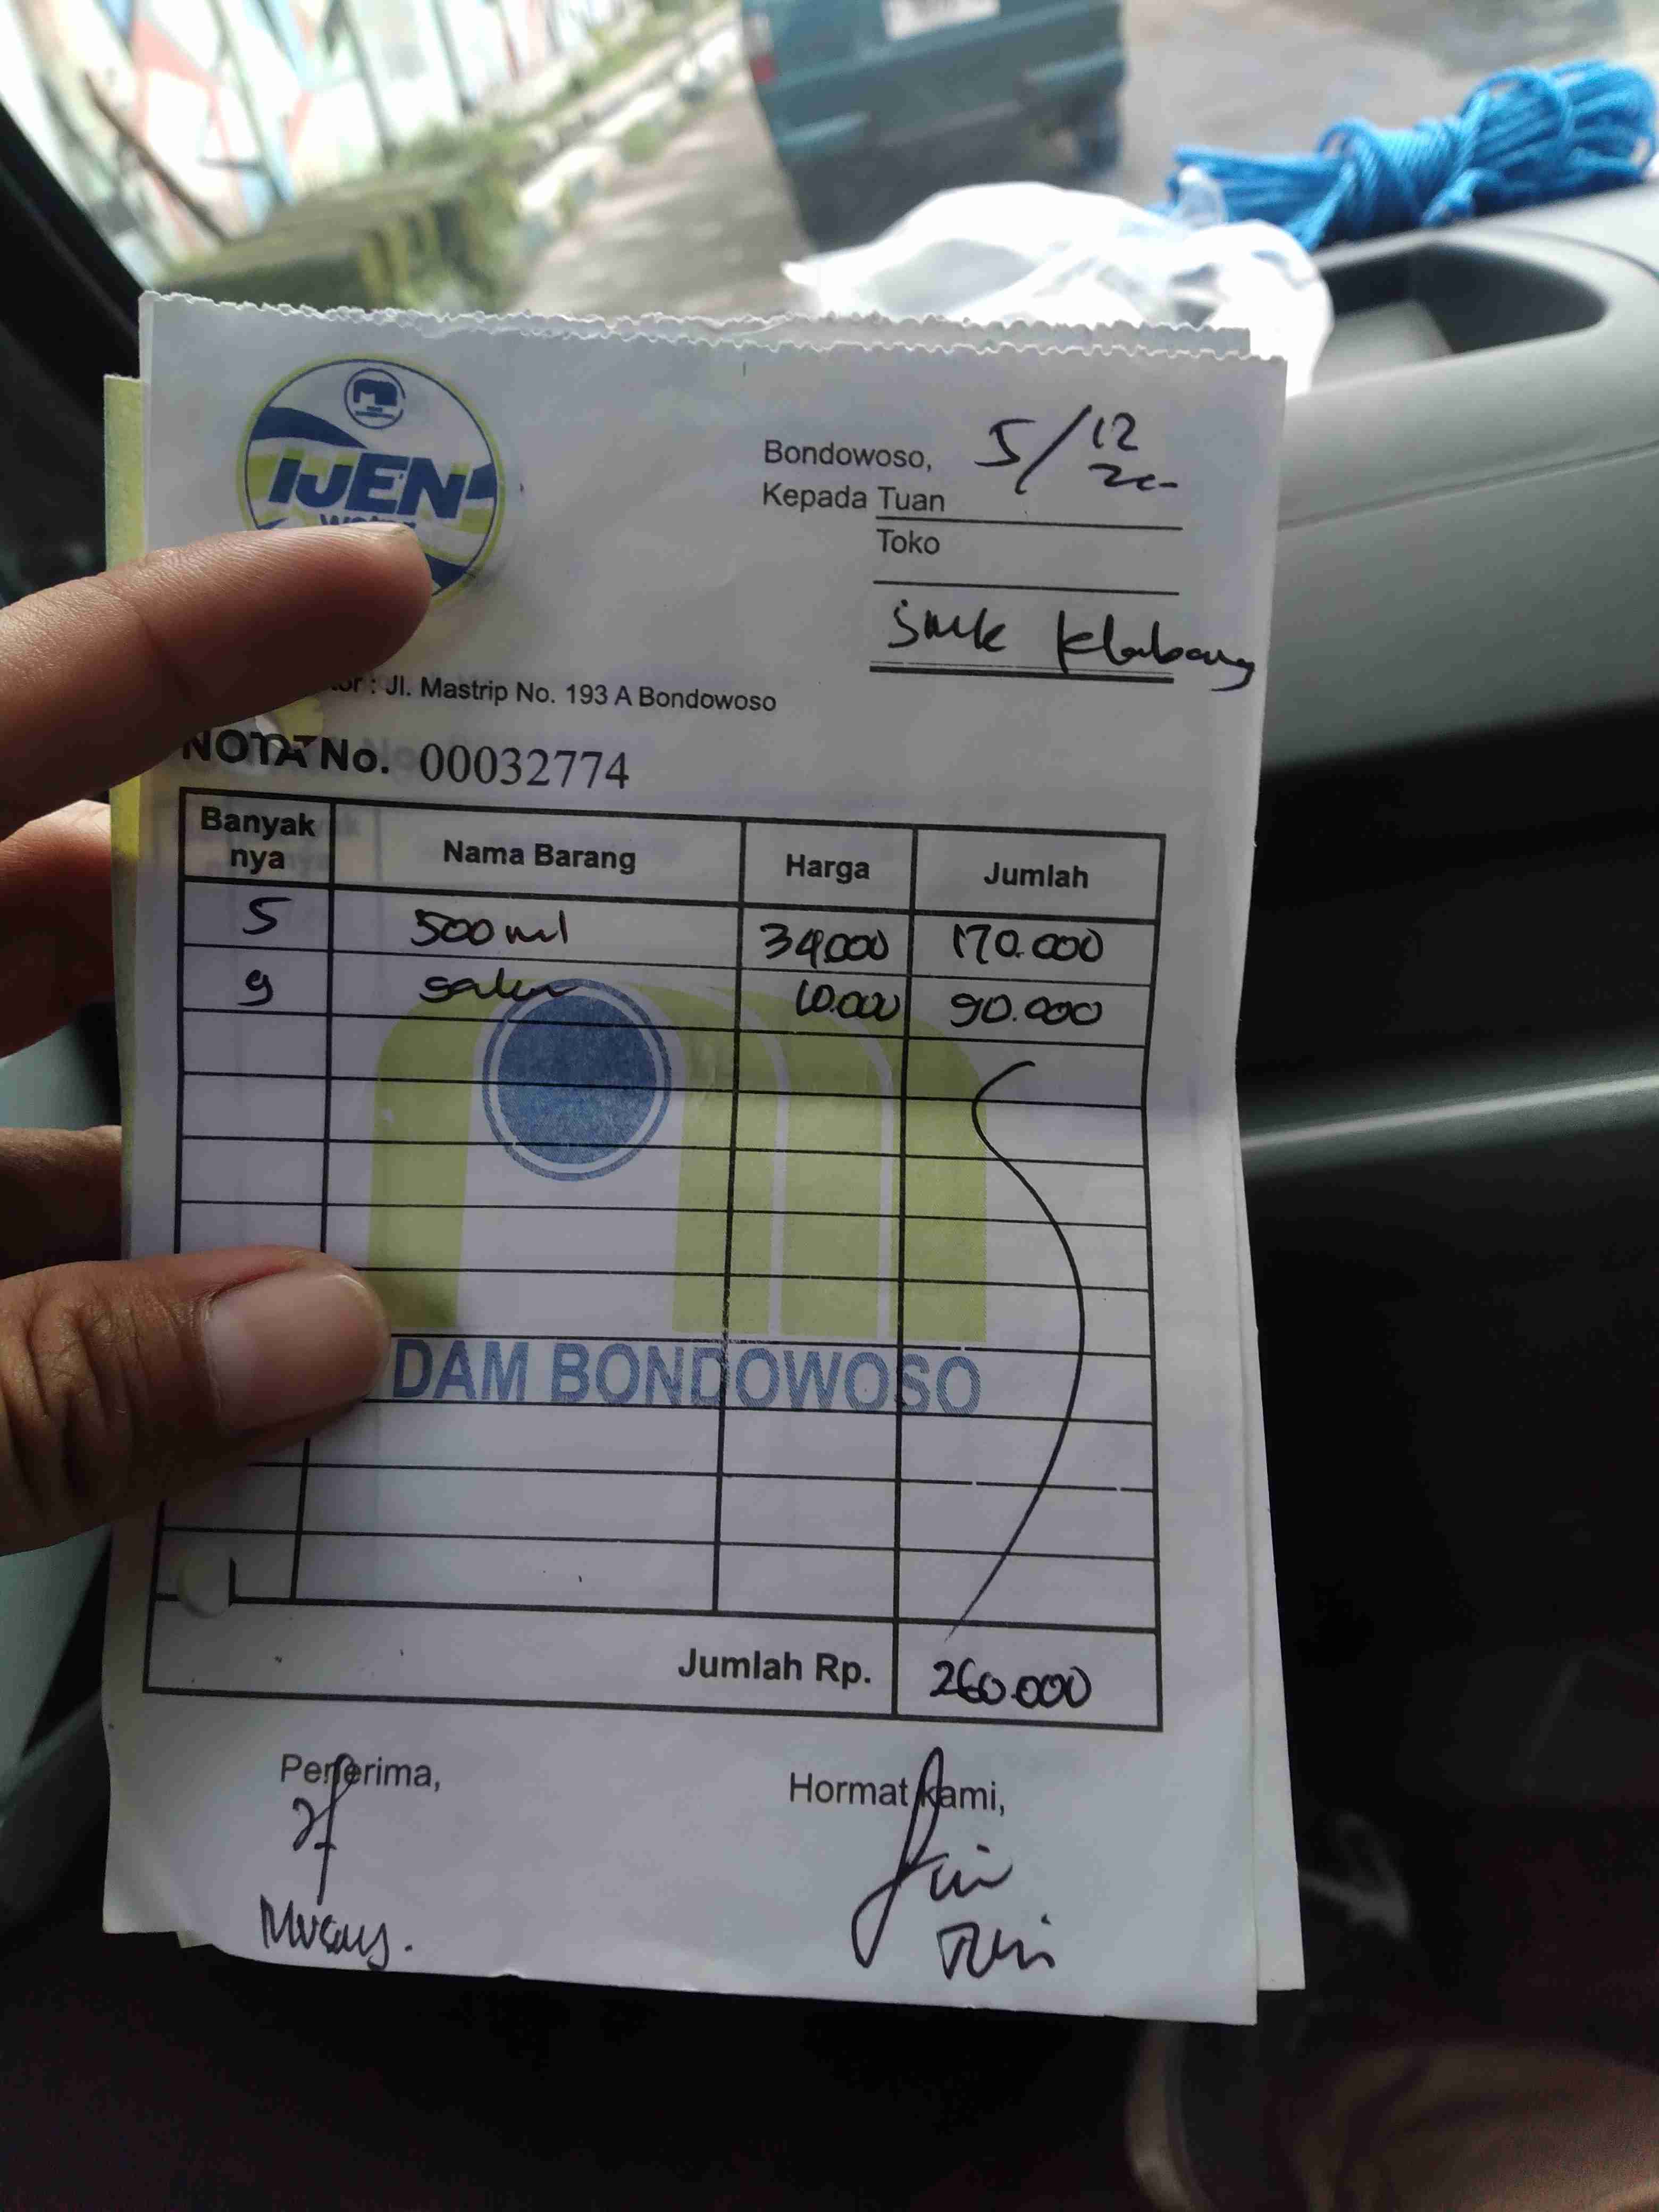 IJEN
Bondowoso, 5/12 20
Kepada Tuan
Toko
smk Klabang
: Jl. Mastrip No. 193 A Bondowoso
NOTA No. 00032774
Banyak nya Nama Barang Harga Jumlah
5 500 ml 34.000 170.000
9 galon 10.000 90.000
DAM BONDOWOSO
Jumlah Rp. 260.000
Penerima, Hormat kami,